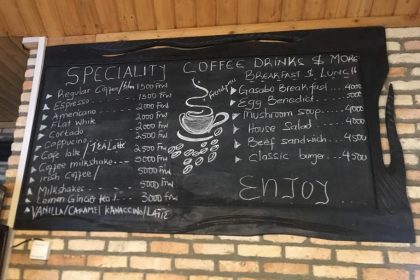 SPECIALITY COFFEE DRINKS & MORE
BREAKFAST & LUNCH
Regular Coffee/ 1500 Frw
Espresso 1500 Frw
Americano 2000 Frw
Flat White 2000 Frw
Cortado 2000 Frw
Cappuccino 2500 Frw
Cafe latte / TEA Latte 2500 Frw
Coffee milkshake 3500 Frw
Irish Coffee/ 5000 Frw
Milkshake 3000 Frw
Lemon Ginger tea 3000 Frw
VANILLA/CARAMEL
Gasabo Breakfast... 4000
Egg Benedict 5000
Mushroom soup 4000
House Salad 4000
Beef sandwich... 4500
Classic burger... 4500
ENJOY